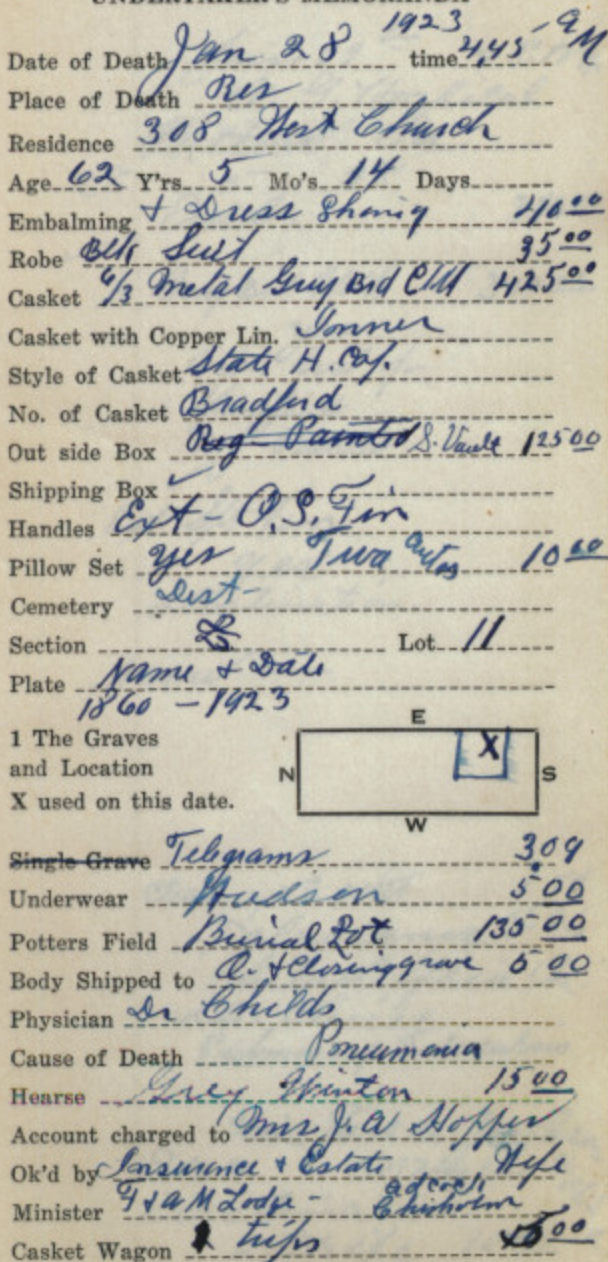 UNDERTAKER'S MEMORANDA
Date of Death Jan 28 1923 time 4,45 - AM
Place of Death Res
Residence 308 West Church
Age 62 Y'rs 5 Mo's 14 Days
Embalming + Dress Shaving 40 00
Robe Blk Suit 35 00
Casket 6/3 Metal Gray Brd Clth 425 00
Casket with Copper Lin. Inner
Style of Casket State H. Cop.
No. of Casket Bradford
Out side Box Reg - Painted S. Vault 125 00
Shipping Box
Handles Ext - O.S. Tin
Pillow Set yes Two autos 10 00
Cemetery Dist -
Section Lot 11
Plate Name + Date
1860 - 1923
E
1 The Graves
and Location N X S
X used on this date.
W
Single Grave Telegrams 3.09
Underwear Hudson 5 00
Potters Field Burial Lot 135 00
Body Shipped to O. + Closing grave 5 00
Physician Dr Childs
Cause of Death Pneumonia
Hearse Grey Winton 15 00
Account charged to Mrs J. A Hopper
Ok'd by Insurance + Estate Wife
Minister F + A M Lodge - Adcock Chisholm
Casket Wagon trips 00